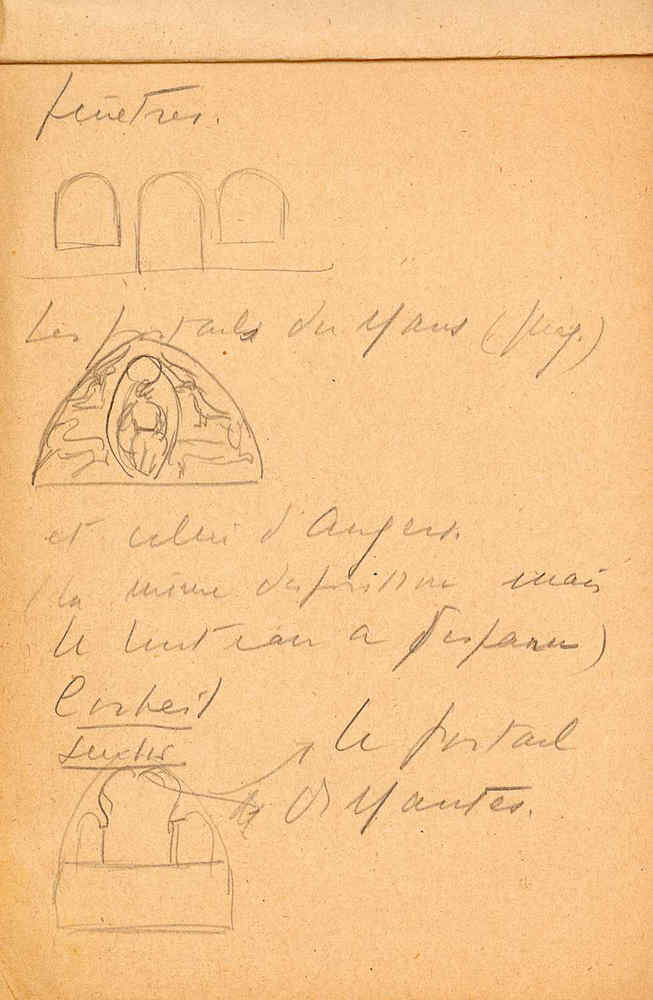 fenêtres.
Les portails du Mans (
et celui d'Angers.
(la même disposition mais
le linteau a disparu)
Corbeil
le portail
de Mantes.